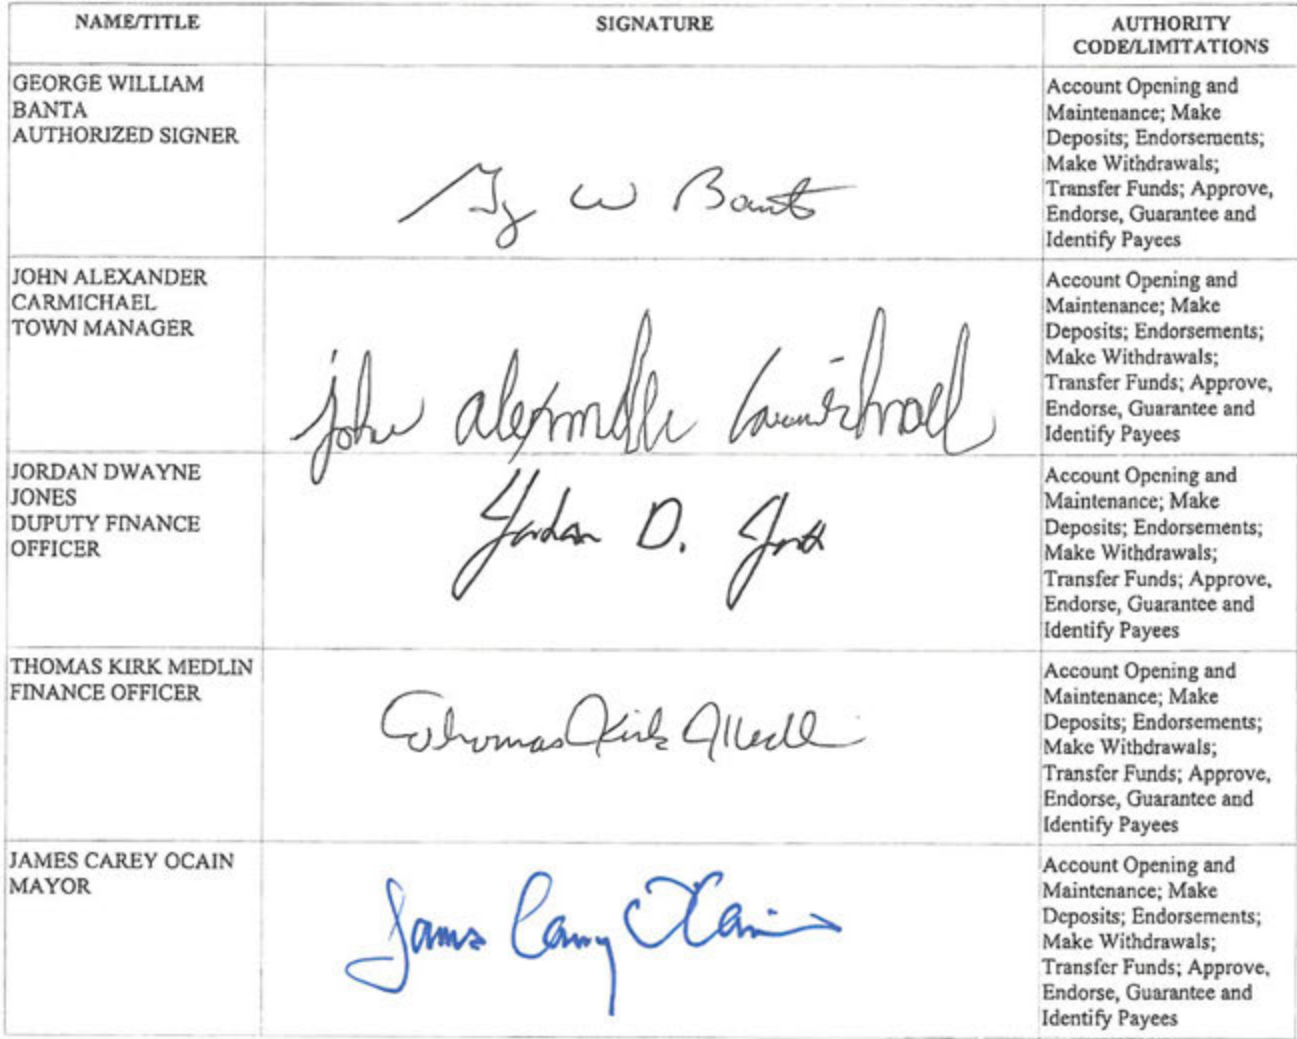 NAME/TITLE
SIGNATURE
AUTHORITY
CODE/LIMITATIONS
GEORGE WILLIAM
BANTA
AUTHORIZED SIGNER
W Banta
Account Opening and
Maintenance; Make
Deposits; Endorsements;
Make Withdrawals;
Transfer Funds; Approve,
Endorse, Guarantee and
Identify Payees
JOHN ALEXANDER
CARMICHAEL
TOWN MANAGER
john alexander Carmichael
Account Opening and
Maintenance; Make
Deposits; Endorsements;
Make Withdrawals;
Transfer Funds; Approve,
Endorse, Guarantee and
Identify Payees
JORDAN DWAYNE
JONES
DUPUTY FINANCE
OFFICER
Jordan D. Jones
Account Opening and
Maintenance; Make
Deposits; Endorsements;
Make Withdrawals;
Transfer Funds; Approve,
Endorse, Guarantee and
Identify Payees
THOMAS KIRK MEDLIN
FINANCE OFFICER
Thomas Kirk Medlin
Account Opening and
Maintenance; Make
Deposits; Endorsements;
Make Withdrawals;
Transfer Funds; Approve,
Endorse, Guarantee and
Identify Payees
JAMES CAREY OCAIN
MAYOR
James Carey OCain
Account Opening and
Maintenance; Make
Deposits; Endorsements;
Make Withdrawals;
Transfer Funds; Approve,
Endorse, Guarantee and
Identify Payees